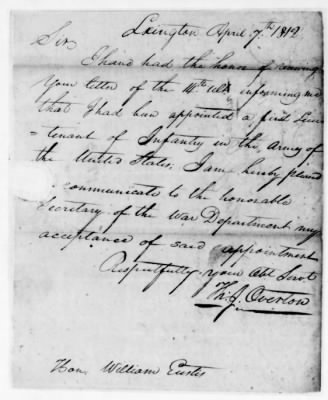 Lexington April 7th 1812
Sir
I have had the honor of receiving
your letter of the 14th ult. informing me
that I had been appointed a first Lieu
=tenant of Infantry in the Army of
the United States; I am hereby pleased
communicate to the honorable
Secretary of the War Department my
acceptance of said appointment
Respectfully your Obt Servt
Th. J. Overton
Hon. William Eustis